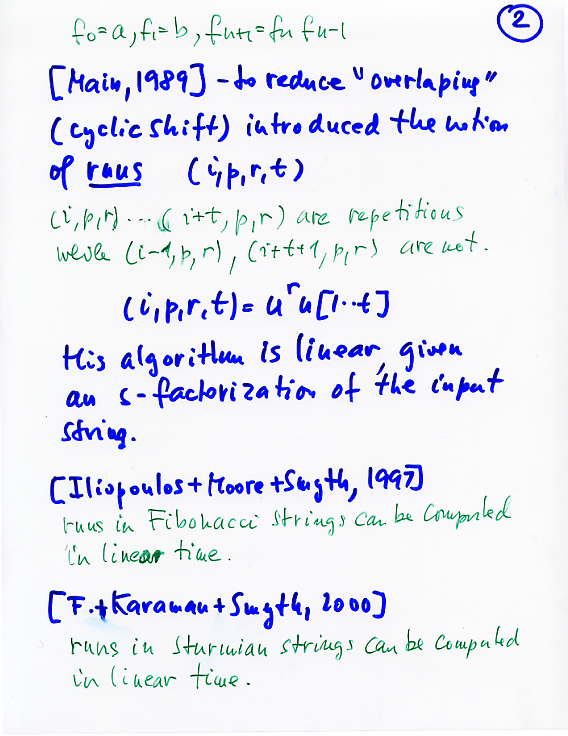 2
f0=a, f1=b, fn+1=fn fn-1
[Main, 1989] - to reduce "overlaping"
(cyclic shift) introduced the notion
of runs (i,p,r,t)
(i,p,r)...(i+t,p,r) are repetitions
while (i-1,p,r), (i+t+1,p,r) are not.
(i,p,r,t) = u^r u[1..t]
His algorithm is linear, given
an s-factorization of the input
string.
[Iliopoulos+Moore+Smyth, 1997]
runs in Fibonacci strings can be computed
in linear time.
[F.+Karaman+Smyth, 2000]
runs in Sturmian strings can be computed
in linear time.